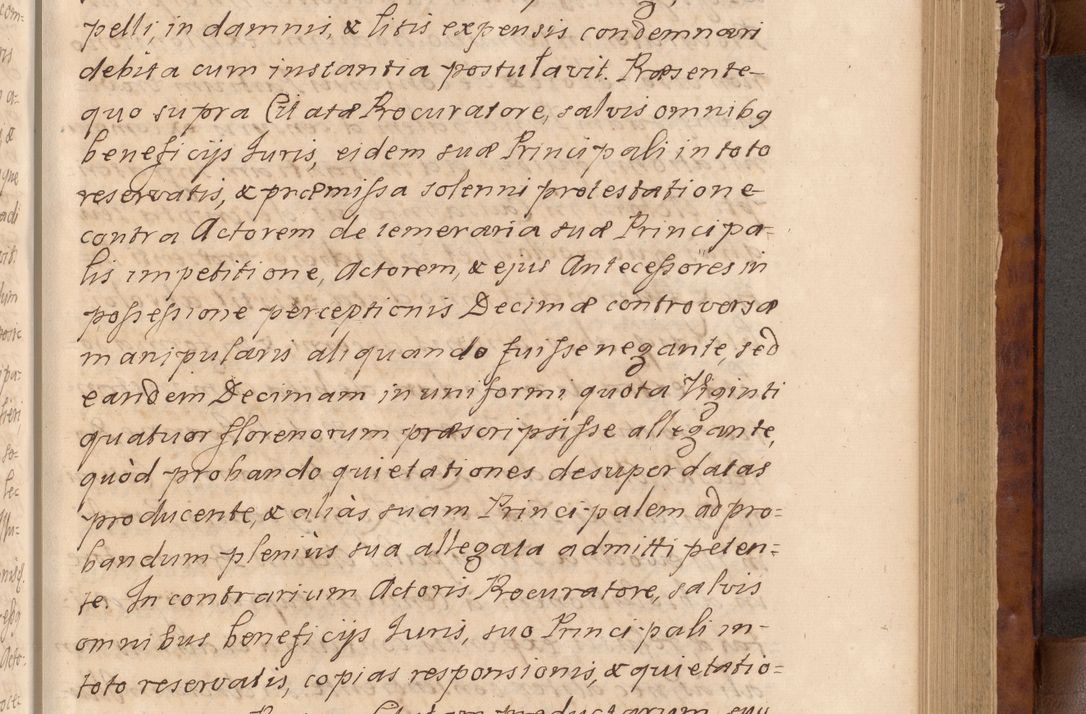 pelli, in damnis, & litis expensis condemnari
debita cum instantia postulavit. Præsente
quo supra Citatæ Procuratore, salvis omnibꝫ
beneficijs Juris, eidem suæ Principali in toto
reservatis, & præmissa solenni protestatione
contra Actorem de temeraria suæ Principa=
lis impetitione, Actorem, & ejus Antecessores in
possessione perceptionis Decimæ controversæ
manipularis aliquando fuisse negante, sed
eandem Decimam in uniformi quota Viginti
quatuor florenorum præscripsisse allegante,
quòd probando quietationes desuper datas
producente, & aliàs suam Principalem ad pro=
bandum pleniùs sua allegata admitti peten=
te. In contrarium Actoris Procuratore, salvis
omnibus beneficijs Juris, suo Principali in
toto reservatis, copias responsionis, & quietatio=